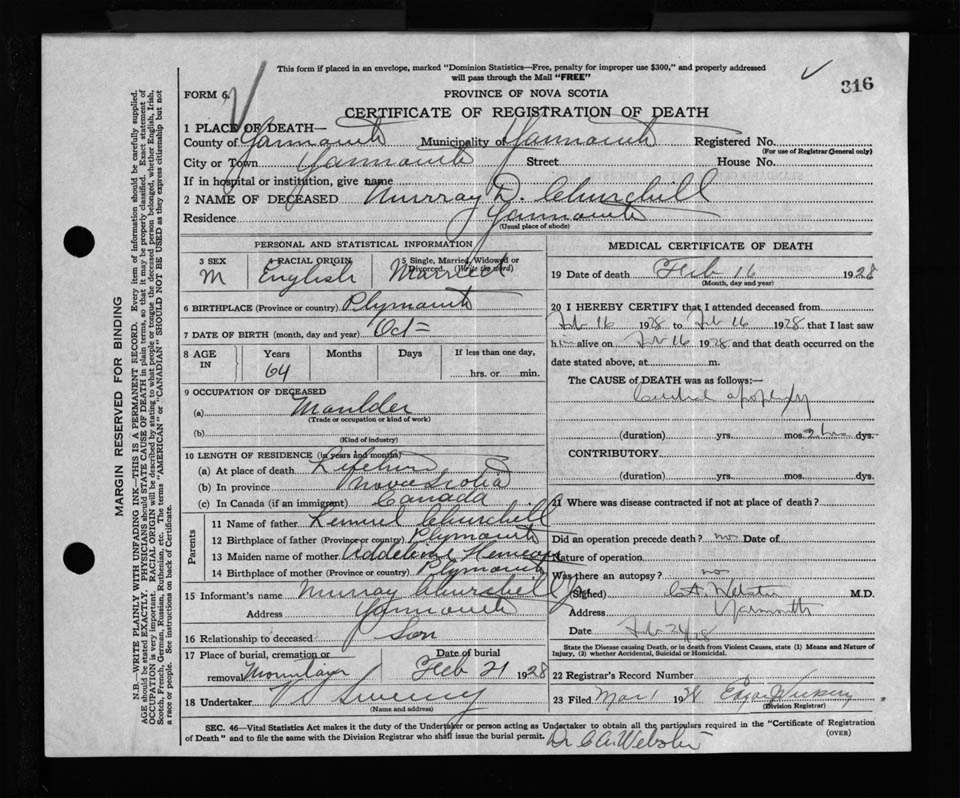 This form if placed in an envelope, marked "Dominion Statistics—Free, penalty for improper use $300," and properly addressed
will pass through the Mail "FREE"
316
FORM 6.
PROVINCE OF NOVA SCOTIA
CERTIFICATE OF REGISTRATION OF DEATH
1 PLACE OF DEATH—
County of Yarmouth Municipality of Yarmouth Registered No.
(For use of Registrar General only)
City or Town Yarmouth Street House No.
If in hospital or institution, give name
2 NAME OF DECEASED Murray D. Churchill
Residence Yarmouth
(Usual place of abode)
PERSONAL AND STATISTICAL INFORMATION
3 SEX 4 RACIAL ORIGIN 5 Single, Married, Widowed or Divorced. (Write the word)
M English Married
6 BIRTHPLACE (Province or country) Plymouth
7 DATE OF BIRTH (month, day and year) Oct
8 AGE IN Years Months Days If less than one day,
64 hrs. or min.
9 OCCUPATION OF DECEASED
(a) Moulder
(Trade or occupation or kind of work)
(b)
(Kind of industry)
10 LENGTH OF RESIDENCE (in years and months)
(a) At place of death Lifetime
(b) In province Nova Scotia
(c) In Canada (if an immigrant) Canada
Parents
11 Name of father Lemuel Churchill
12 Birthplace of father (Province or country) Plymouth
13 Maiden name of mother
14 Birthplace of mother (Province or country) Plymouth
15 Informant's name Murray Churchill Jr
Address Yarmouth
16 Relationship to deceased Son
17 Place of burial, cremation or removal Date of burial
Feb 21 1928
18 Undertaker V Sweeny
(Name and address)
MEDICAL CERTIFICATE OF DEATH
19 Date of death Feb 16 1928
(Month, day and year)
20 I HEREBY CERTIFY that I attended deceased from
Feb 16 1928 to Feb 16 1928 that I last saw
him alive on Feb 16 1928 and that death occurred on the
date stated above, at m.
The CAUSE of DEATH was as follows:—
Cerebral apoplexy
(duration) yrs. mos. 2 hrs dys.
CONTRIBUTORY
(duration) yrs. mos. dys.
21 Where was disease contracted if not at place of death?
Did an operation precede death? no Date of
Nature of operation
Was there an autopsy? no
(Signed) C.A. Webster M.D.
Address Yarmouth
Date Feb 24/28
State the Disease causing Death, or in death from Violent Causes, state (1) Means and Nature of
Injury, (2) whether Accidental, Suicidal or Homicidal.
22 Registrar's Record Number
23 Filed Mar 1 1928 Edgar
(Division Registrar)
SEC. 46—Vital Statistics Act makes it the duty of the Undertaker or person acting as Undertaker to obtain all the particulars required in the "Certificate of Registration
of Death" and to file the same with the Division Registrar who shall issue the burial permit.
(OVER)
Dr C A Webster
MARGIN RESERVED FOR BINDING
N.B.—WRITE PLAINLY WITH UNFADING INK—THIS IS A PERMANENT RECORD. Every item of information should be carefully supplied.
AGE should be stated EXACTLY. PHYSICIANS should STATE CAUSE OF DEATH in plain terms, so that it may be properly classified. Exact statement of
OCCUPATION is very important. RACIAL ORIGIN will be described by stating to what people or tongue the deceased person belonged, whether English, Irish,
Scotch, French, German, Russian, Ruthenian, etc. The terms "AMERICAN" or "CANADIAN" SHOULD NOT BE USED as they express citizenship but not
a race or people. See instructions on back of Certificate.